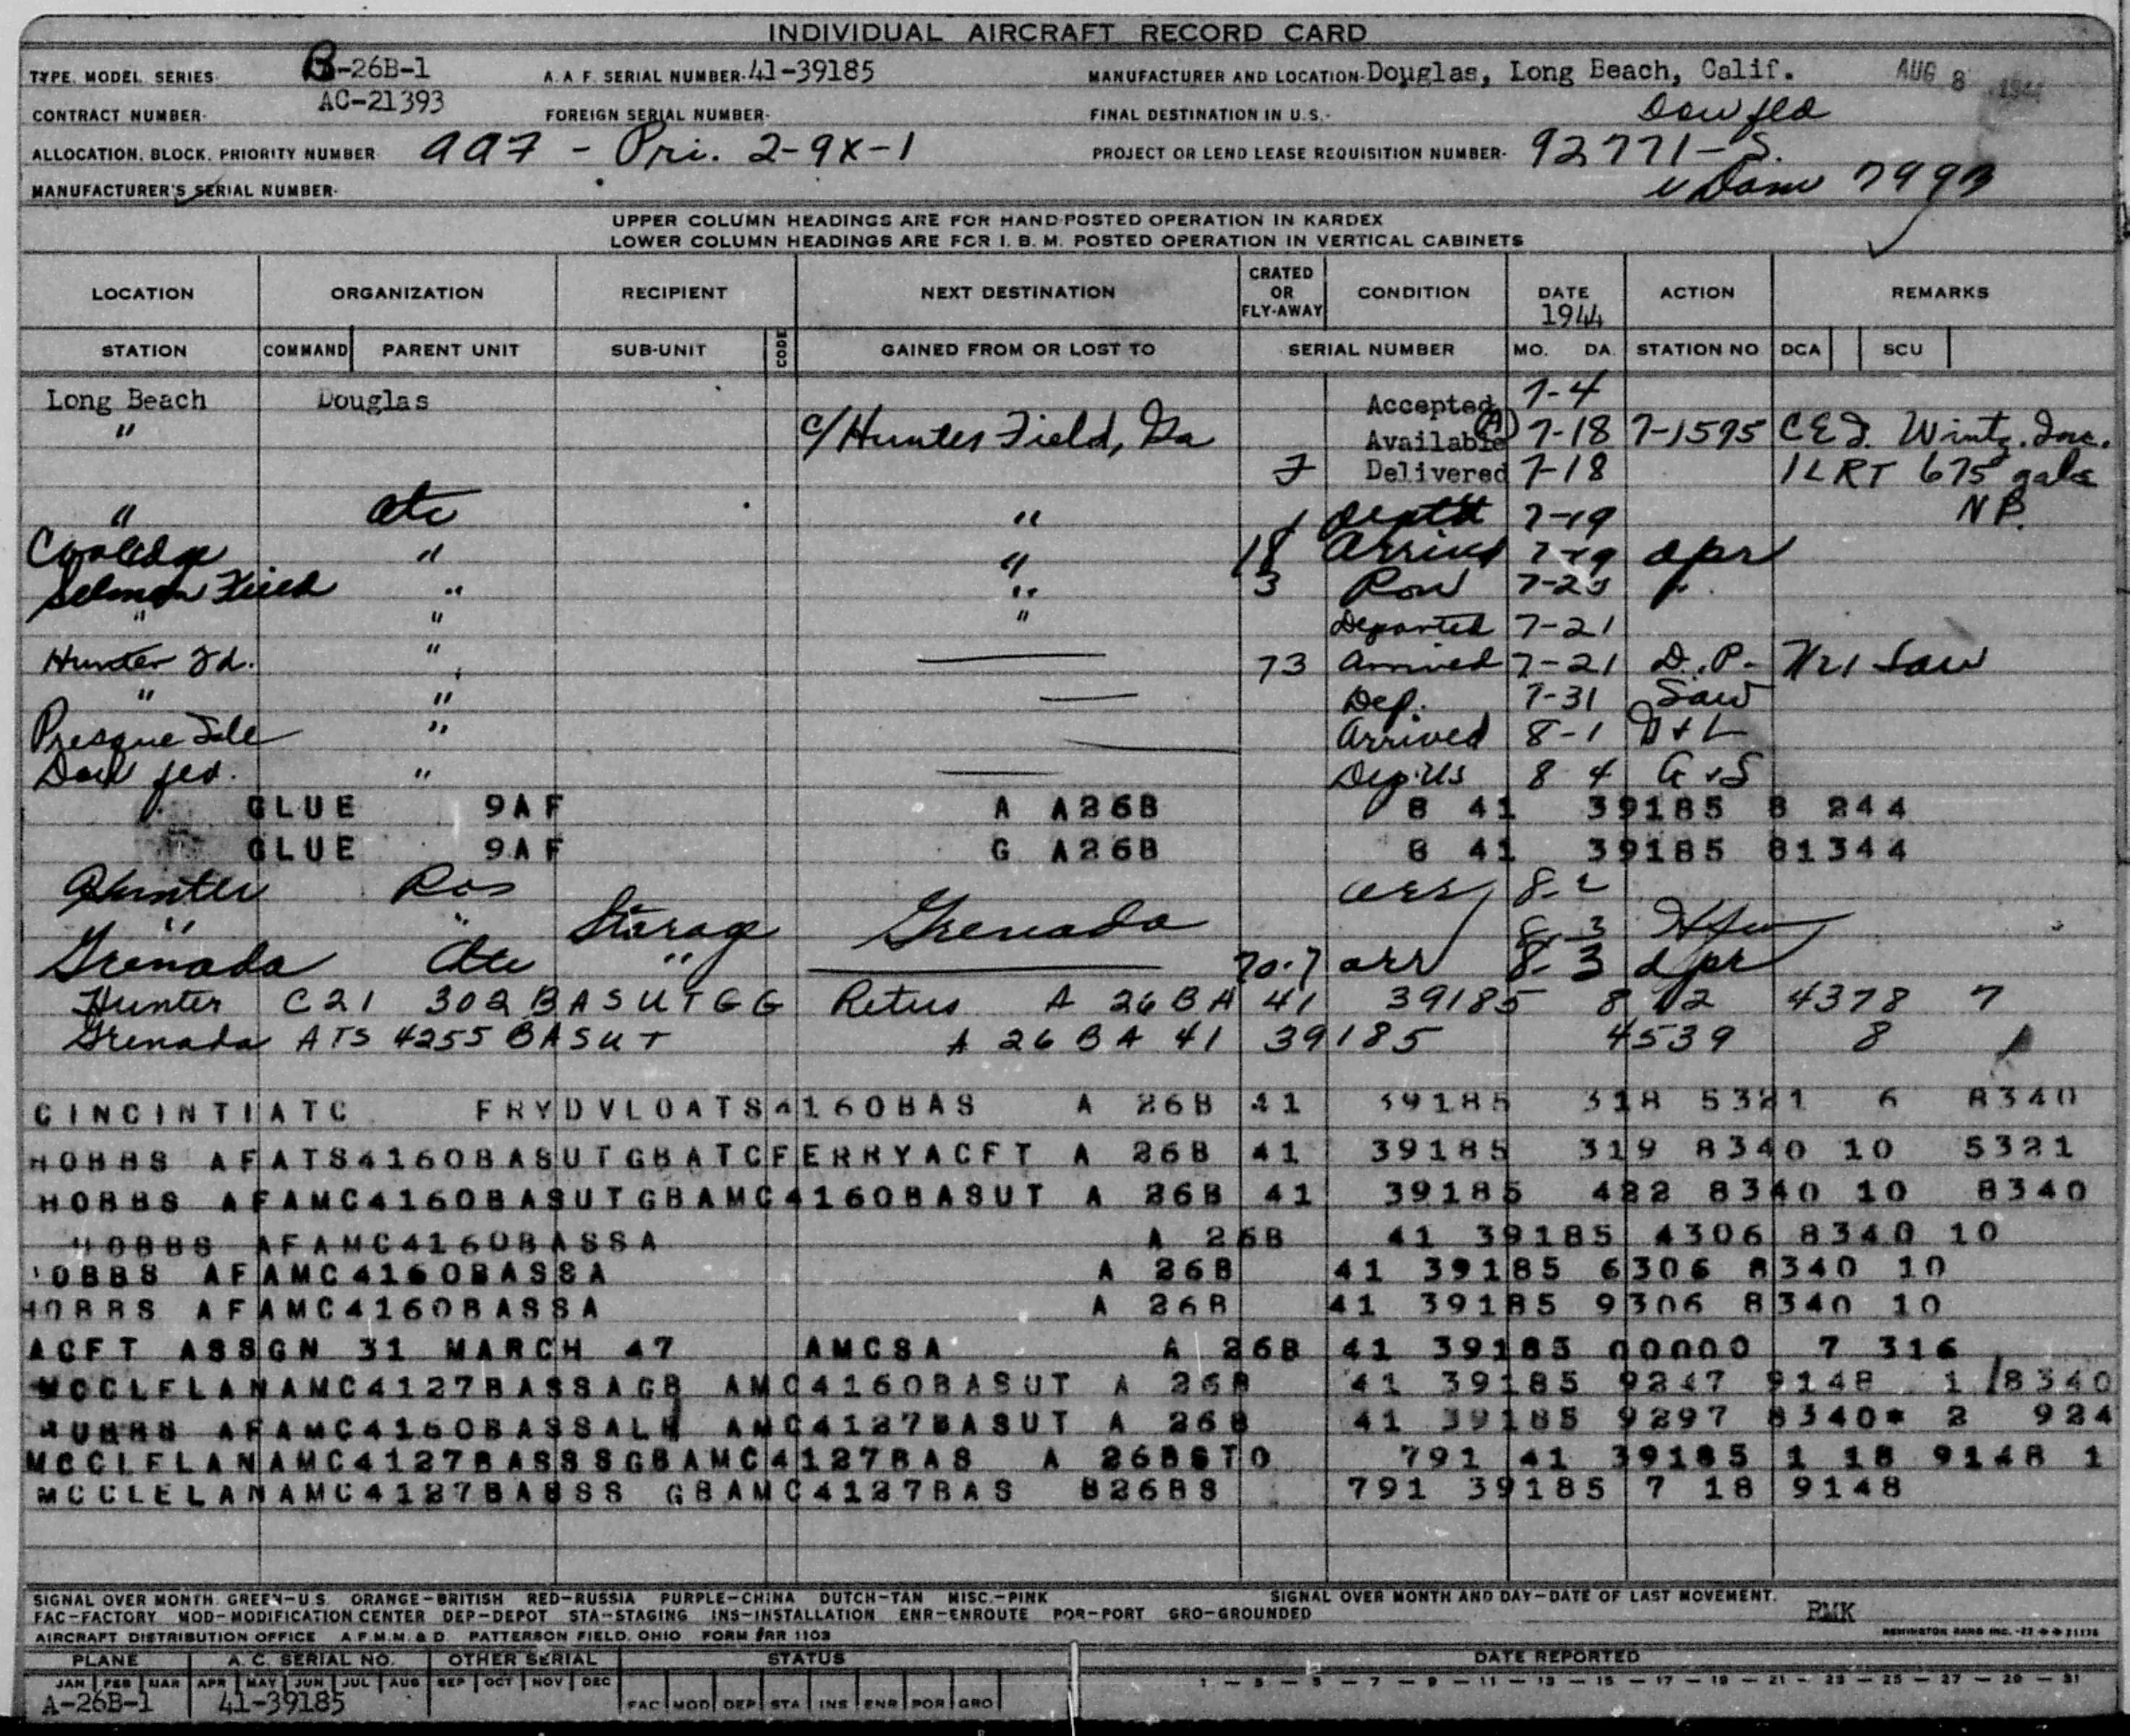 INDIVIDUAL AIRCRAFT RECORD CARD
TYPE, MODEL, SERIES B-26B-1 A. A. F. SERIAL NUMBER 41-39185 MANUFACTURER AND LOCATION Douglas, Long Beach, Calif. AUG 8 1944
CONTRACT NUMBER AC-21393 FOREIGN SERIAL NUMBER FINAL DESTINATION IN U. S. Dow fld
ALLOCATION, BLOCK, PRIORITY NUMBER 997 - Pri. 2-9X-1 PROJECT OR LEND LEASE REQUISITION NUMBER 92771-S.
MANUFACTURER'S SERIAL NUMBER
UPPER COLUMN HEADINGS ARE FOR HAND-POSTED OPERATION IN KARDEX
LOWER COLUMN HEADINGS ARE FOR I. B. M. POSTED OPERATION IN VERTICAL CABINETS
LOCATION ORGANIZATION RECIPIENT NEXT DESTINATION CRATED OR FLY-AWAY CONDITION DATE 1944 ACTION REMARKS
STATION COMMAND PARENT UNIT SUB-UNIT CODE GAINED FROM OR LOST TO SERIAL NUMBER MO. DA. STATION NO DCA SCU
Long Beach Douglas Accepted 7-4
" c/Hunter Field, Ga Available (A) 7-18 7-1595 CEF. Wintz. Inc.
7 Delivered 7-18 1LRT 675 gals
" atc " 7-19 NP.
" " 18 Arrived 7-19 dpr
Selman Field " " 3 Ron 7-20
" " " Departed 7-21
Hunter Fd. " 73 Arrived 7-21 D.P. 7/21 Saw
" " Dep. 7-31 Saw
Presque Isle " Arrived 8-1 D+L
Dow fld. " Dep. US 8 4 G+S
GLUE 9AF A A26B 8 41 39185 8 244
GLUE 9AF G A26B 8 41 39185 81344
Hunter arr 8-2
" " Storage Grenada 8-3
Grenada Atc " 70-7 arr 8-3 dpr
Hunter C21 302BASUTGG Retus A 26BA 41 39185 8 12 4378 7
Grenada ATS 4255BASUT A 26BA 41 39185 4539 8
CINCINTIATC FRYDVLOATS4160BAS A 26B 41 39185 318 5321 6 8340
HOBBS AFATS4160BASUTGBATCFERRYACFT A 26B 41 39185 319 8340 10 5321
HOBBS AFAMC4160BASUTGBAMC4160BASUT A 26B 41 39185 422 8340 10 8340
HOBBS AFAMC4160BASSA A 26B 41 39185 4306 8340 10
'OBBS AFAMC4160BASSA A 26B 41 39185 6306 8340 10
HOBBS AFAMC4160BASSA A 26B 41 39185 9306 8340 10
ACFT ASSGN 31 MARCH 47 AMCSA A 26B 41 39185 00000 7 316
MCCLELANAMC4127BASSAGB AMC4160BASUT A 26B 41 39185 9247 9148 1 8340
HOBBS AFAMC4160BASSAL AMC4127BASUT A 26B 41 39185 9297 8340* 2 924
MCCLELANAMC4127BASSSGBAMC4127BAS A 26BSTO 791 41 39185 1 18 9148 1
MCCLELANAMC4127BASSS GBAMC4127BAS B26BS 791 39185 7 18 9148
SIGNAL OVER MONTH. GREEN-U.S. ORANGE-BRITISH RED-RUSSIA PURPLE-CHINA DUTCH-TAN MISC.-PINK SIGNAL OVER MONTH AND DAY-DATE OF LAST MOVEMENT.
FAC-FACTORY MOD-MODIFICATION CENTER DEP-DEPOT STA-STAGING INS-INSTALLATION ENR-ENROUTE POR-PORT GRO-GROUNDED RMK
AIRCRAFT DISTRIBUTION OFFICE A.F.M.M.&D. PATTERSON FIELD, OHIO FORM #RR 1103 REMINGTON RAND INC.
PLANE A.C. SERIAL NO. OTHER SERIAL STATUS DATE REPORTED
JAN FEB MAR APR MAY JUN JUL AUG SEP OCT NOV DEC 1 - 3 - 5 - 7 - 9 - 11 - 13 - 15 - 17 - 19 - 21 - 23 - 25 - 27 - 29 - 31
A-26B-1 41-39185 FAC MOD DEP STA INS ENR POR GRO